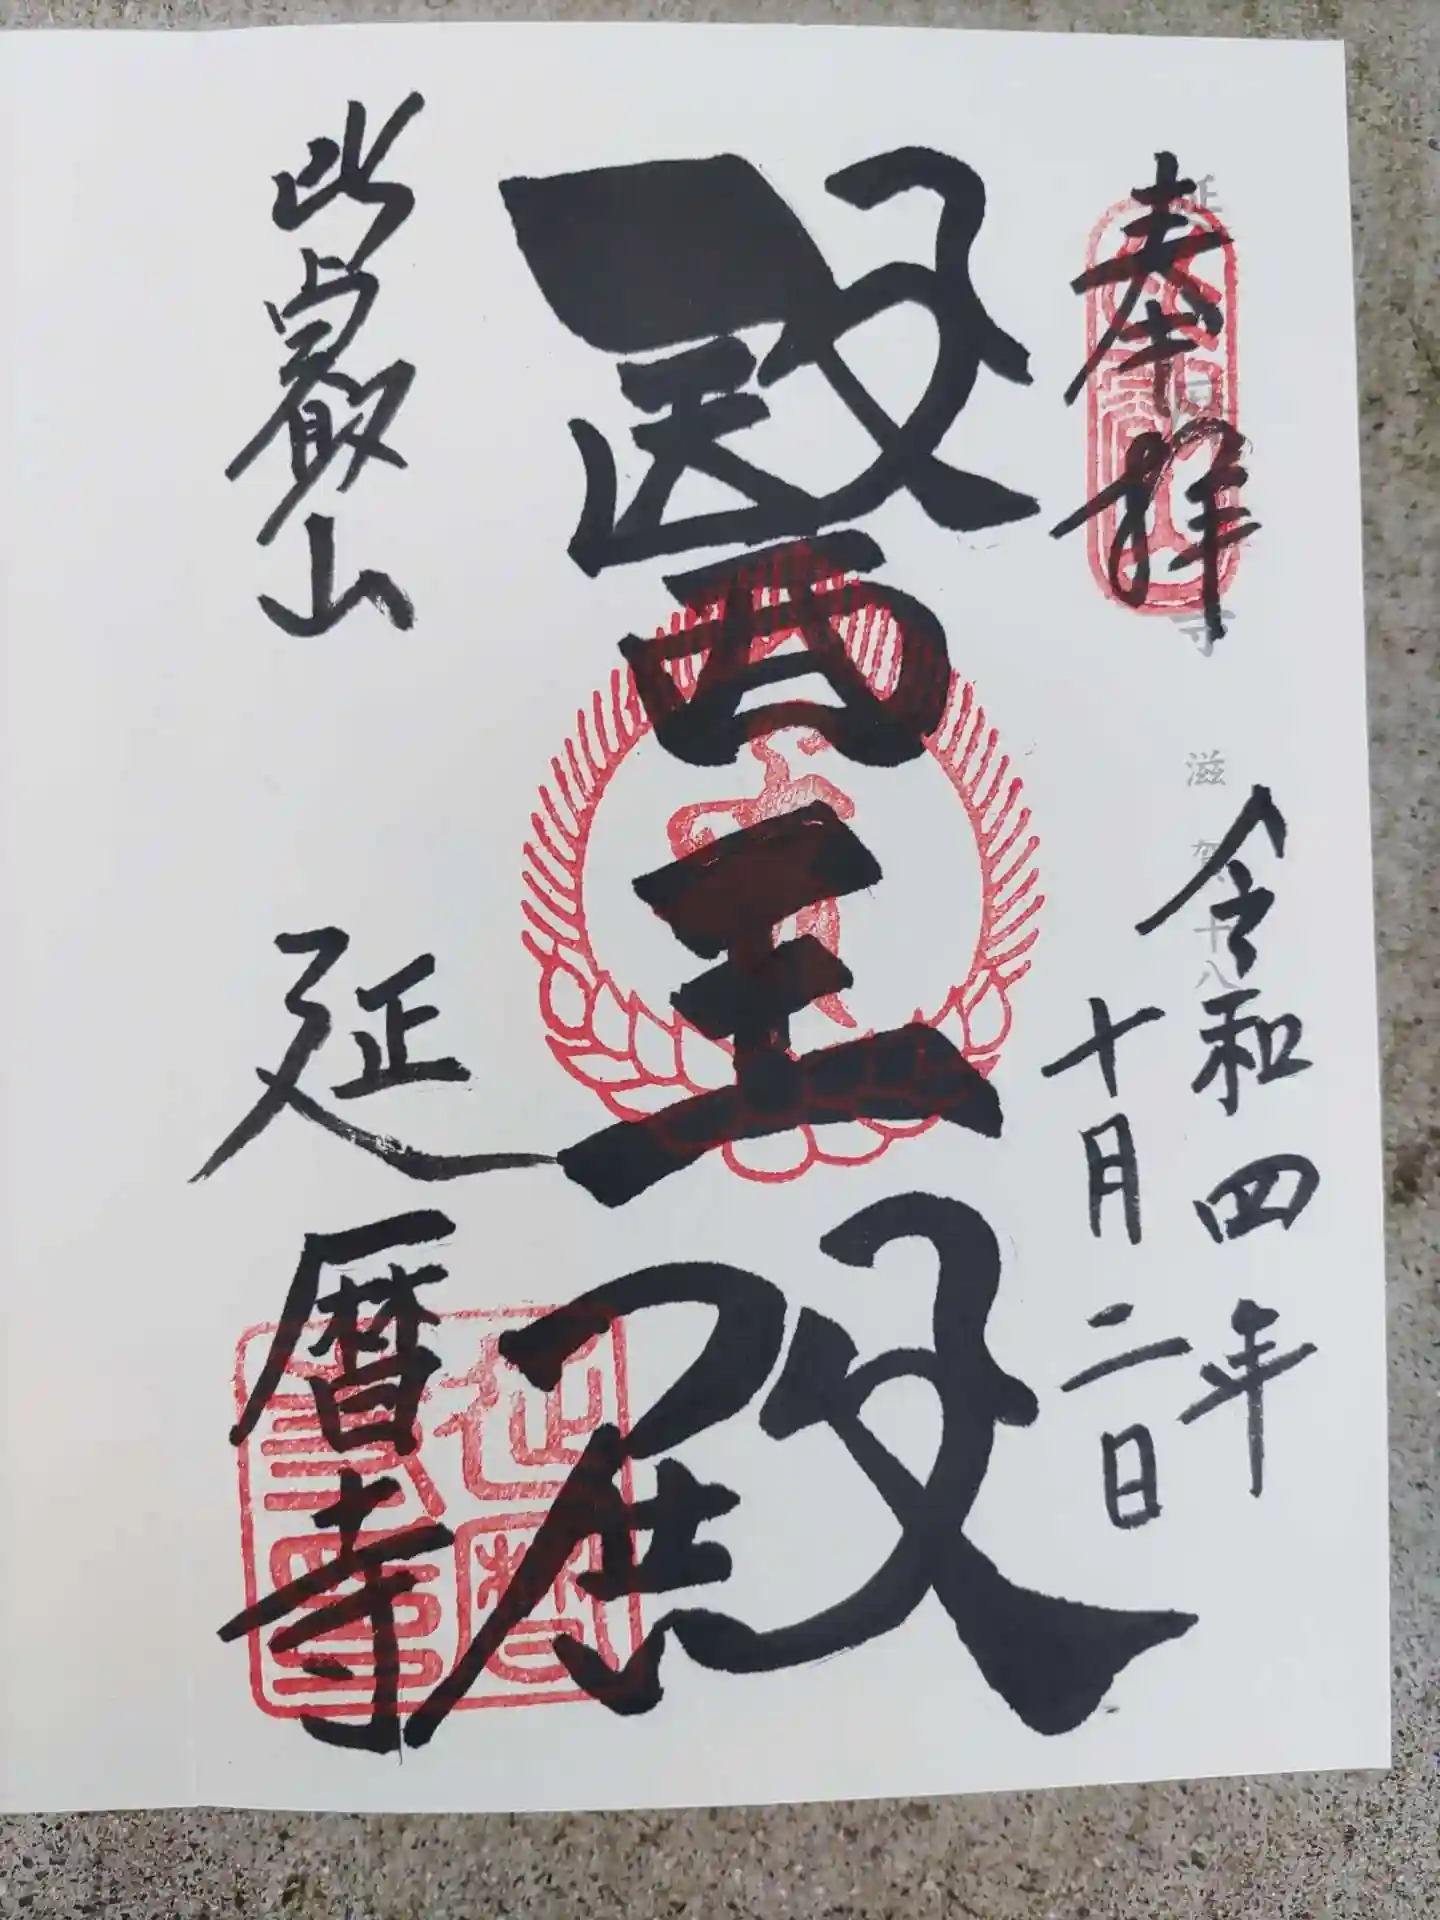 奉拝
令和四年
十月二日
醫王殿
比叡山
延暦寺
延暦寺 滋賀十八